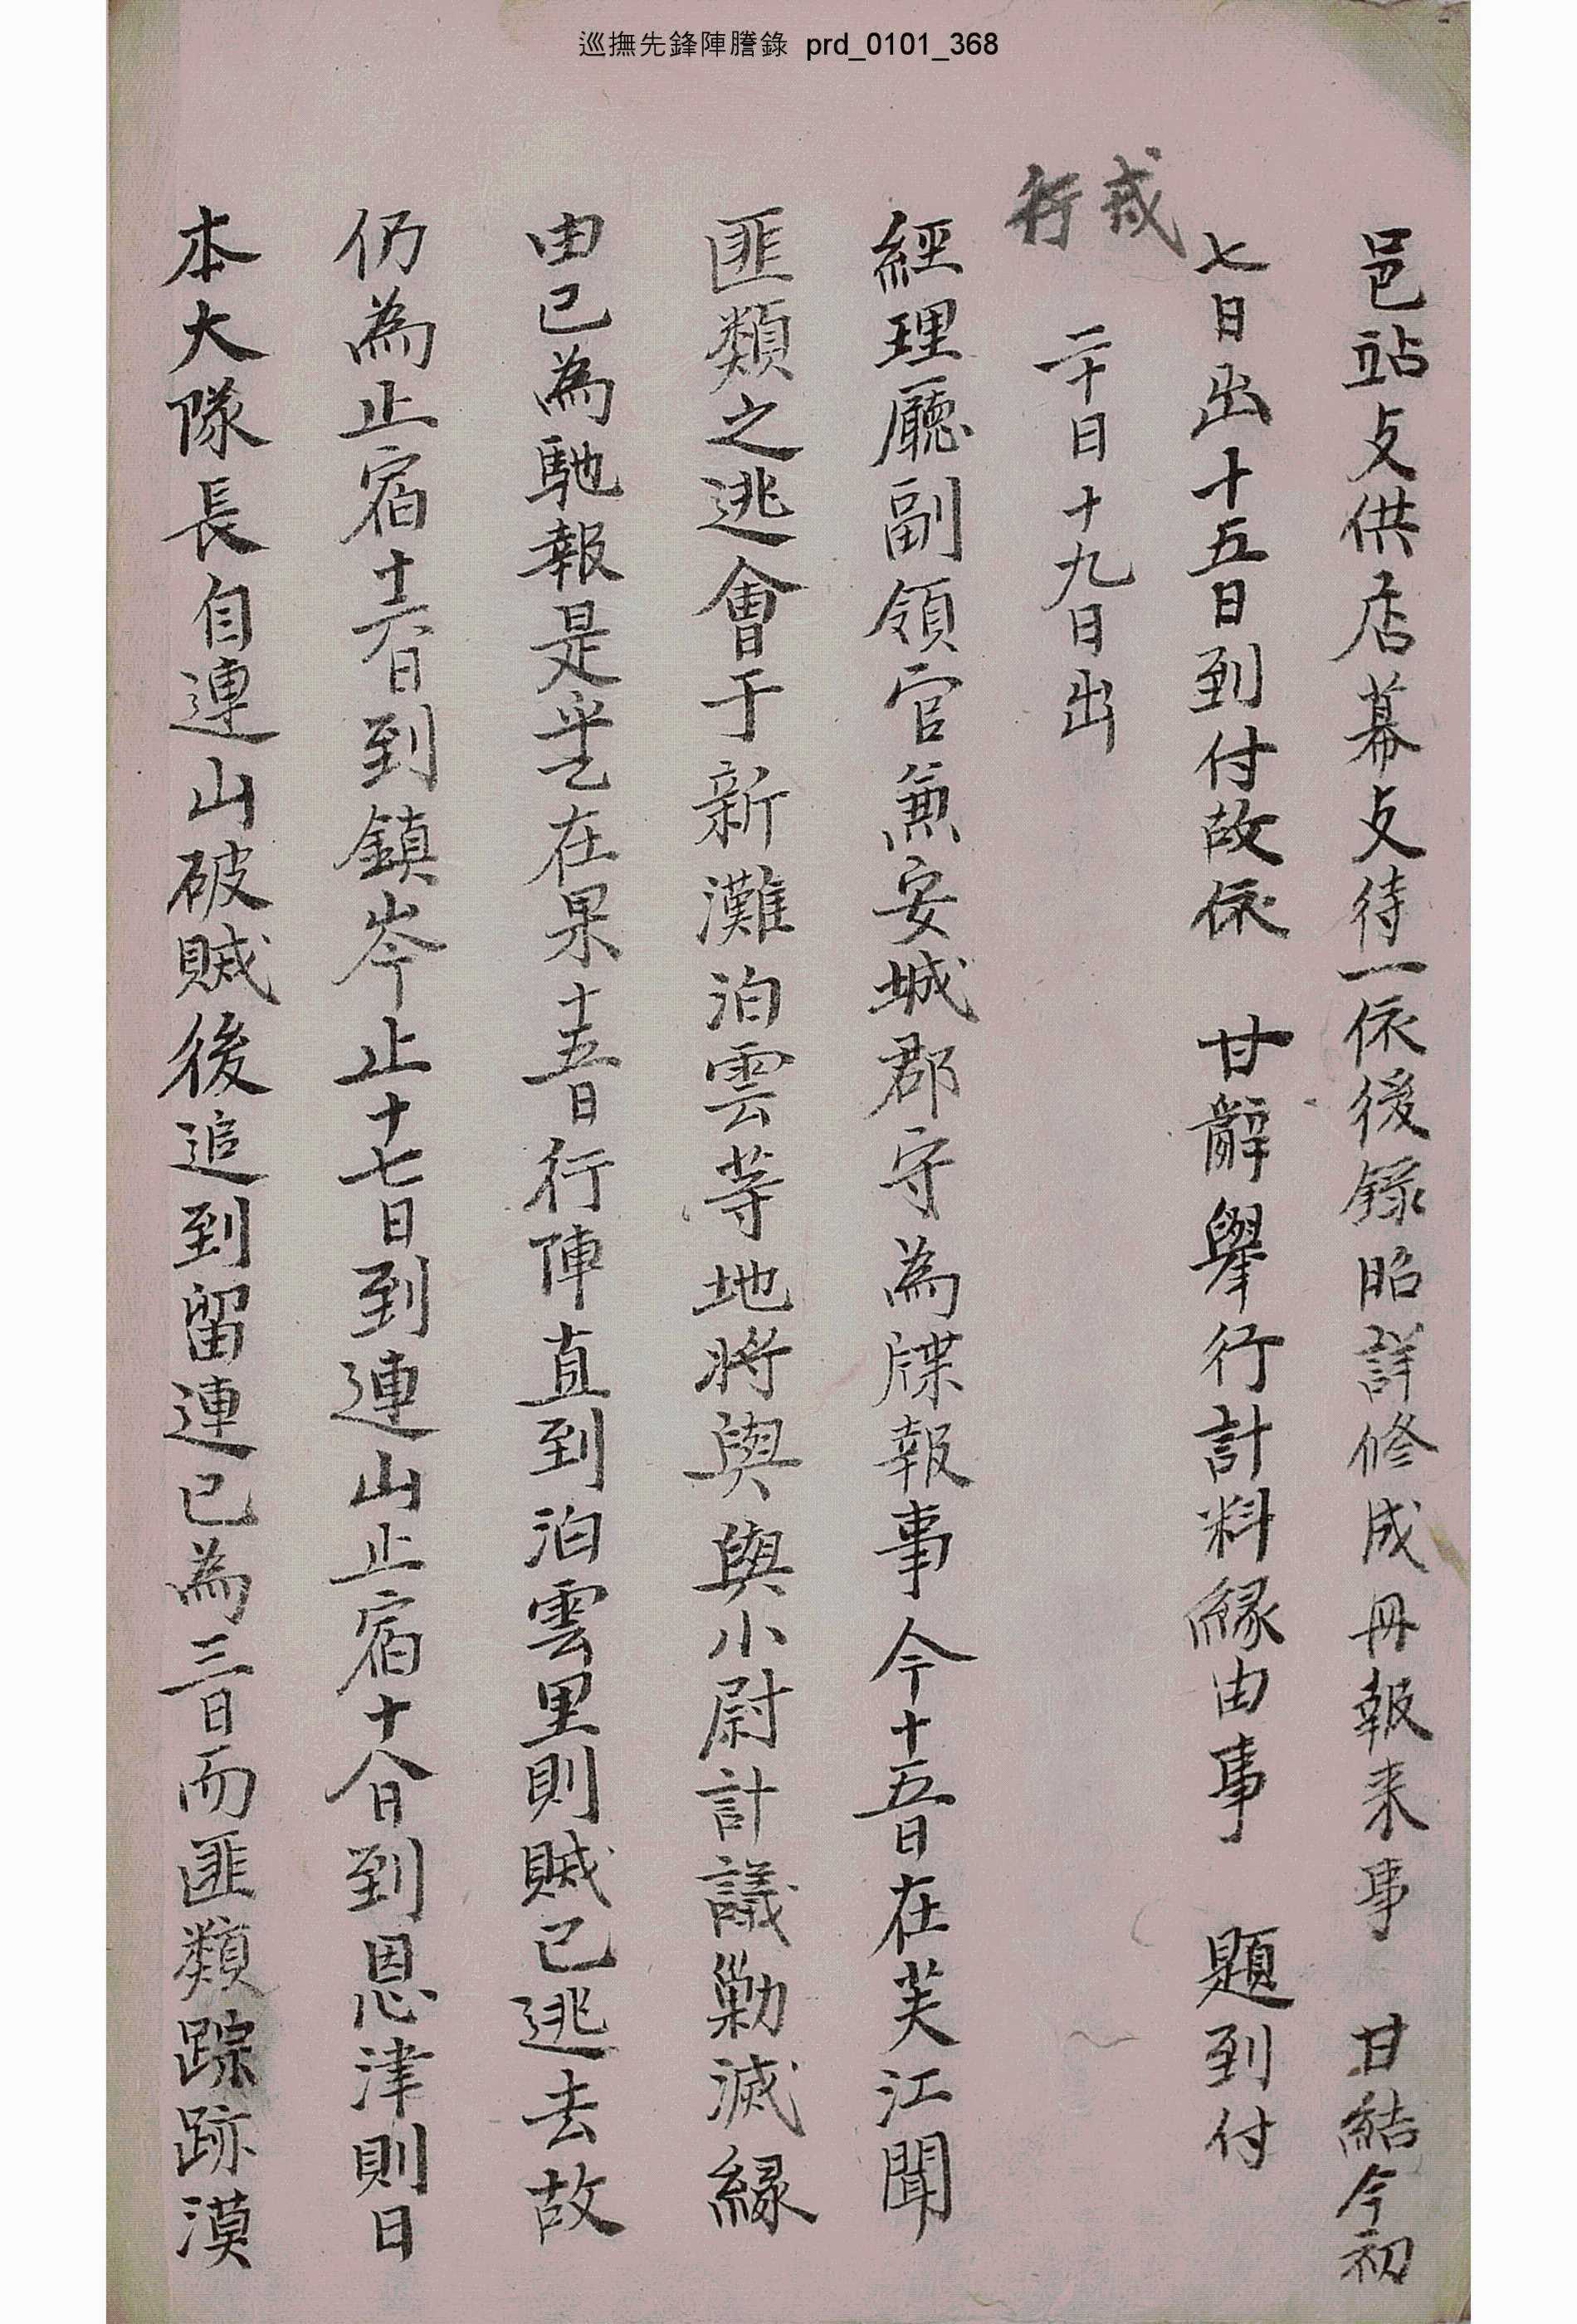 巡撫先鋒陣謄錄 prd_0101_368
邑站攴供店幕攴待一依後錄昭詳修成冊報来事 甘結今初
七日出十五日到付故依 甘辭擧行計料緣由事 題到付
戒行
二十日十九日出
經理廳副領官兼安城郡守為牒報事今十五日在芙江聞
匪類之逃會于新灘泊雲等地將與與小尉計議勦滅緣
由已為馳報是乎乙在果十五日行陣直到泊雲里則賊已逃去故
仍為止宿十六日到鎮岑止十七日到連山止宿十八日到恩津則日
本大隊長自連山破賊後追到留連已為三日而匪類踪跡漠